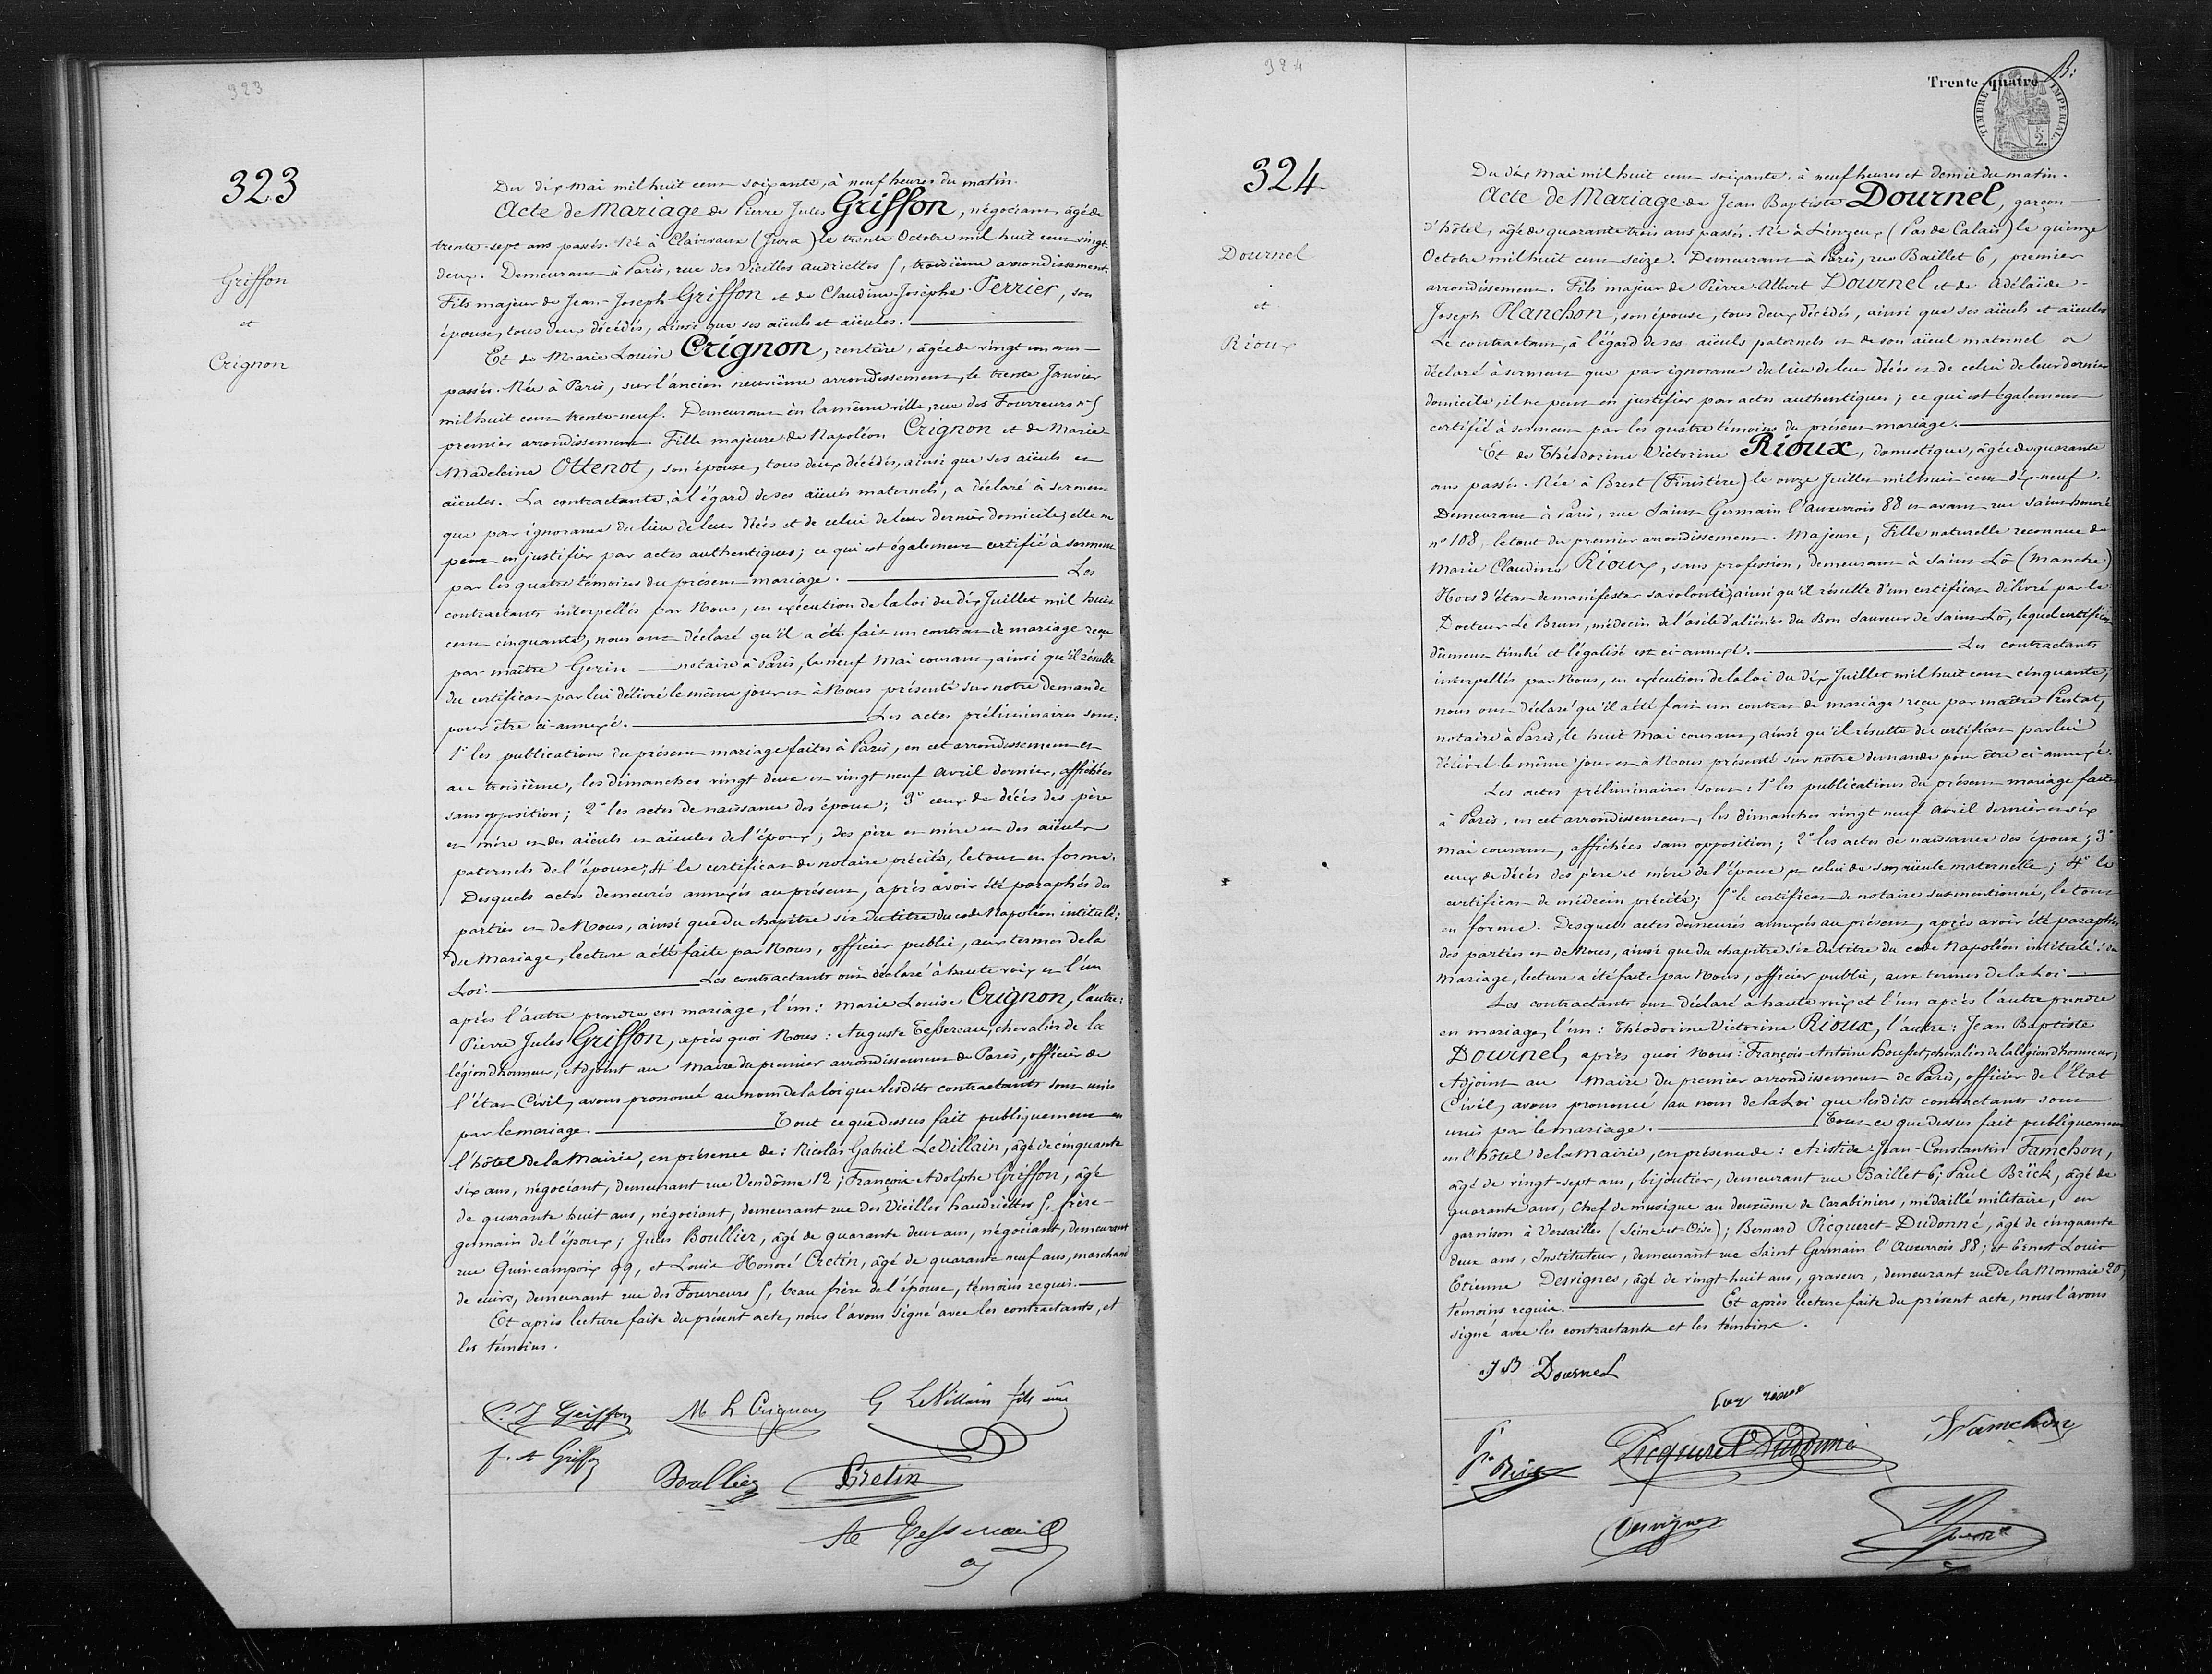 323
323
Griffon
et
Crignon
Du dix Mai mil huit cent soixante, à neuf heures du matin.
Acte de Mariage de Pierre Jules Griffon, négociant, âgé de
trente-sept ans passés. Né à Clairvaux (Jura) le trente Octobre mil huit cent vingt
deux. Demeurant à Paris, rue des Vieilles audriettes 5, troisième arrondissement.
Fils majeur de Jean-Joseph Griffon et de Claudine-Josèphe Perrier, son
épouse, tous deux décédés, ainsi que ses aïeuls et aïeules.
Et de Marie Louise Crignon, rentière, âgée de vingt un ans
passés. Née à Paris, sur l'ancien neuvième arrondissement, le trente Janvier
mil huit cent trente-neuf. Demeurant en la même ville, rue des Fourreurs n° 5
premier arrondissement. Fille majeure de Napoléon Crignon et de Marie
Madeleine Ottenot, son épouse, tous deux décédés, ainsi que ses aïeuls et
aïeules. La contractante, à l'égard de ses aïeuls maternels, a déclaré à serment
que par ignorance du lieu de leur décès et de celui de leur dernier domicile, elle ne
peut en justifier par actes authentiques; ce qui est également certifié à serment
par les quatre témoins du présent mariage. Les
contractants interpellés par Nous, en exécution de la loi du dix Juillet mil huit
cent cinquante, nous ont déclaré qu'il a été fait un contrat de mariage reçu
par maître Gerin notaire à Paris, le neuf Mai courant, ainsi qu'il résulte
du certificat par lui délivré le même jour et à Nous présenté sur notre demande
pour être ci-annexé. Les actes préliminaires sont:
1° les publications du présent mariage faites à Paris, en cet arrondissement et
au troisième, les dimanches vingt deux et vingt neuf avril dernier, affichées
sans opposition; 2° les actes de naissance des époux; 3° ceux de décès des père
et mère et des aïeuls et aïeules de l'époux; des père et mère et des aïeuls
paternels de l'épouse; 4° le certificat de notaire précité, le tout en forme.
Desquels actes demeurés annexés au présent, après avoir été paraphés des
parties et de Nous, ainsi que du chapitre six du titre du code Napoléon intitulé:
Du Mariage, lecture a été faite par Nous, officier public, aux termes de la
Loi. Les contractants ont déclaré à haute voix et l'un
après l'autre prendre en mariage, l'un: Marie Louise Crignon, l'autre:
Pierre Jules Griffon, après quoi Nous: Auguste Tessereau, chevalier de la
légion d'honneur, Adjoint au Maire du premier arrondissement de Paris, officier de
l'état Civil, avons prononcé au nom de la loi que lesdits contractants sont unis
par le mariage. Tout ce que dessus fait publiquement en
l'hôtel de la Mairie, en présence de: Nicolas Gabriel LeVillain, âgé de cinquante
six ans, négociant, demeurant rue Vendôme 12; François Adolphe Griffon, âgé
de quarante huit ans, négociant, demeurant rue des Vieilles haudriettes 5, frère
germain de l'époux; Jules Boullier, âgé de quarante deux ans, négociant, demeurant
rue Quincampoix 99, et Louis Honoré Cretin, âgé de quarante neuf ans, marchand
de cuirs, demeurant rue des Fourreurs 5, beau frère de l'épouse, témoins requis.
Et après lecture faite du présent acte, nous l'avons signé avec les contractants, et
les témoins.
P. J Griffon M L Crignon G LeVillain fils aîné
f. A Griffon
Boullier Cretin
Ate Tessereau
324
Trente-quatre
TIMBRE IMPERIAL
SEINE
324
Dournel
et
Rioux
Du dix Mai mil huit cent soixante, à neuf heures et demie du matin.
Acte de Mariage de Jean Baptiste Dournel, garçon
d'hôtel, âgé de quarante trois ans passés. Né à Linzeux (Pas de Calais) le quinze
Octobre mil huit cent seize. Demeurant à Paris, rue Baillet 6, premier
arrondissement. Fils majeur de Pierre-Albert Dournel et de Adélaïde
Joseph Planchon, son épouse, tous deux décédés, ainsi que ses aïeuls et aïeules
Le contractant, à l'égard de ses aïeuls paternels et de son aïeul maternel a
déclaré à serment que par ignorance du lieu de leur décès et de celui de leur dernier
domicile, il ne peut en justifier par actes authentiques; ce qui est également
certifié à serment par les quatre témoins du présent mariage.
Et de Théodorine Victorine Rioux, domestique, âgée de quarante
ans passés. Née à Brest (Finistère) le onze Juillet mil huit cent dix-neuf.
Demeurant à Paris, rue Saint Germain l'Auxerrois 88 et avant rue Saint-honoré
n° 108, le tout du premier arrondissement. Majeure; Fille naturelle reconnue de
Marie Claudine Rioux, sans profession, demeurant à Saint-Lô (Manche)
Hors d'état de manifester sa volonté, ainsi qu'il résulte d'un certificat délivré par le
Docteur Le Brun, médecin de l'asile d'aliénés du Bon Sauveur de Saint-Lô, lequel certificat
dûment timbré et légalisé est ci-annexé. Les contractants
interpellés par Nous, en exécution de la loi du dix Juillet mil huit cent cinquante,
nous ont déclaré qu'il a été fait un contrat de mariage reçu par maître Prestat,
notaire à Paris, le huit Mai courant, ainsi qu'il résulte du certificat par lui
délivré le même jour et à Nous présenté sur notre demande pour être ci-annexé.
Les actes préliminaires sont: 1° les publications du présent mariage faites
à Paris, en cet arrondissement, les dimanches vingt neuf avril dernier et six
mai courant, affichées sans opposition; 2° les actes de naissance des époux; 3°
ceux de décès des père et mère de l'époux et celui de son aïeule maternelle; 4° le
certificat de médecin précité; 5° le certificat de notaire susmentionné, le tout
en forme. Desquels actes demeurés annexés au présent, après avoir été paraphés
des parties et de Nous, ainsi que du chapitre six du titre du code Napoléon intitulé: du
Mariage, lecture a été faite par Nous, officier public, aux termes de la Loi
Les contractants ont déclaré à haute voix et l'un après l'autre prendre
en mariage, l'un: Théodorine Victorine Rioux, l'autre: Jean Baptiste
Dournel, après quoi Nous: François-Antoine chevalier de la légion d'honneur,
Adjoint au Maire du premier arrondissement de Paris, officier de l'Etat
Civil, avons prononcé au nom de la Loi que lesdits contractants sont
unis par le mariage. Tout ce que dessus fait publiquement
en l'hôtel de la Mairie, en présence de: Aristide-Jean-Constantin Famchon,
âgé de vingt-sept ans, bijoutier, demeurant rue Baillet 6; Paul Brick, âgé de
quarante ans, Chef de musique au deuxième de Carabiniers, médaillé militaire, en
garnison à Versailles (Seine et Oise); Bernard Picqueret-Dudonné, âgé de cinquante
deux ans, Instituteur, demeurant rue Saint Germain l'Auxerrois 88; et Ernest Louis
Etienne Desvignes, âgé de vingt-huit ans, graveur, demeurant rue de la Monnaie 20;
témoins requis. Et après lecture faite du présent acte, nous l'avons
signé avec les contractants et les témoins.
J B Dournel
Famchon
Picqueret Dudonné
Desvignes